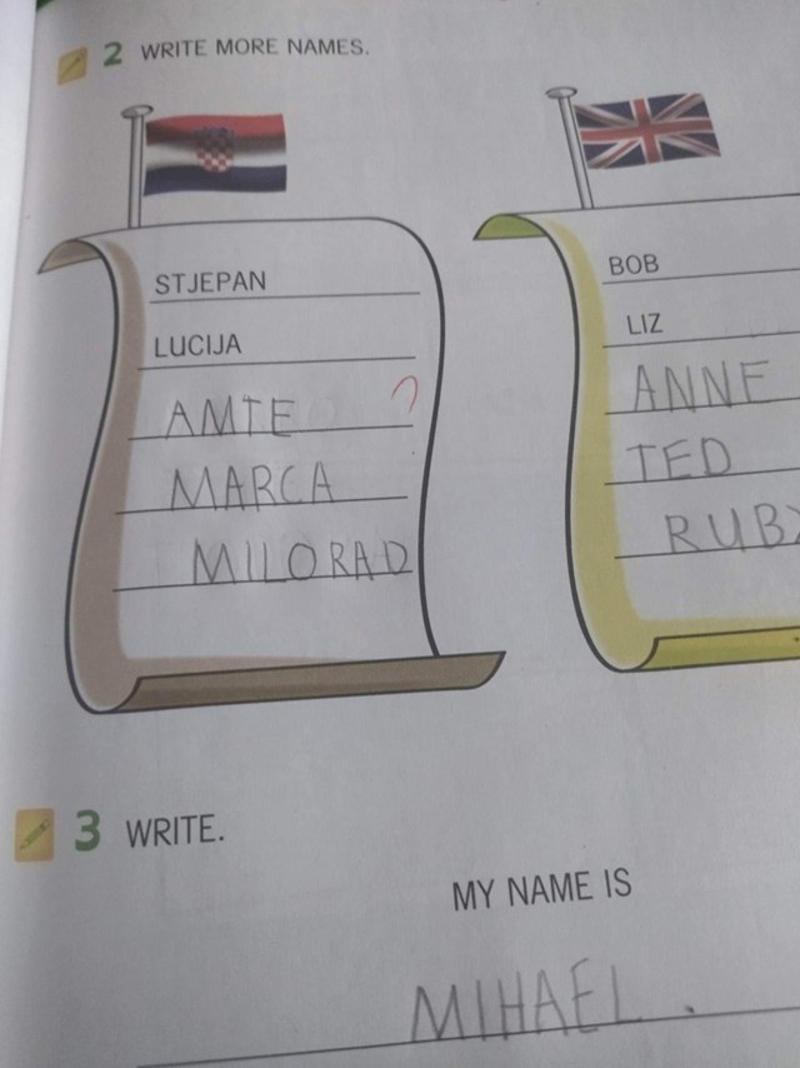 2 WRITE MORE NAMES.
STJEPAN
LUCIJA
AMTE ?
MARCA
MILORAD
BOB
LIZ
ANNE
TED
RUBY
3 WRITE.
MY NAME IS
MIHAEL.